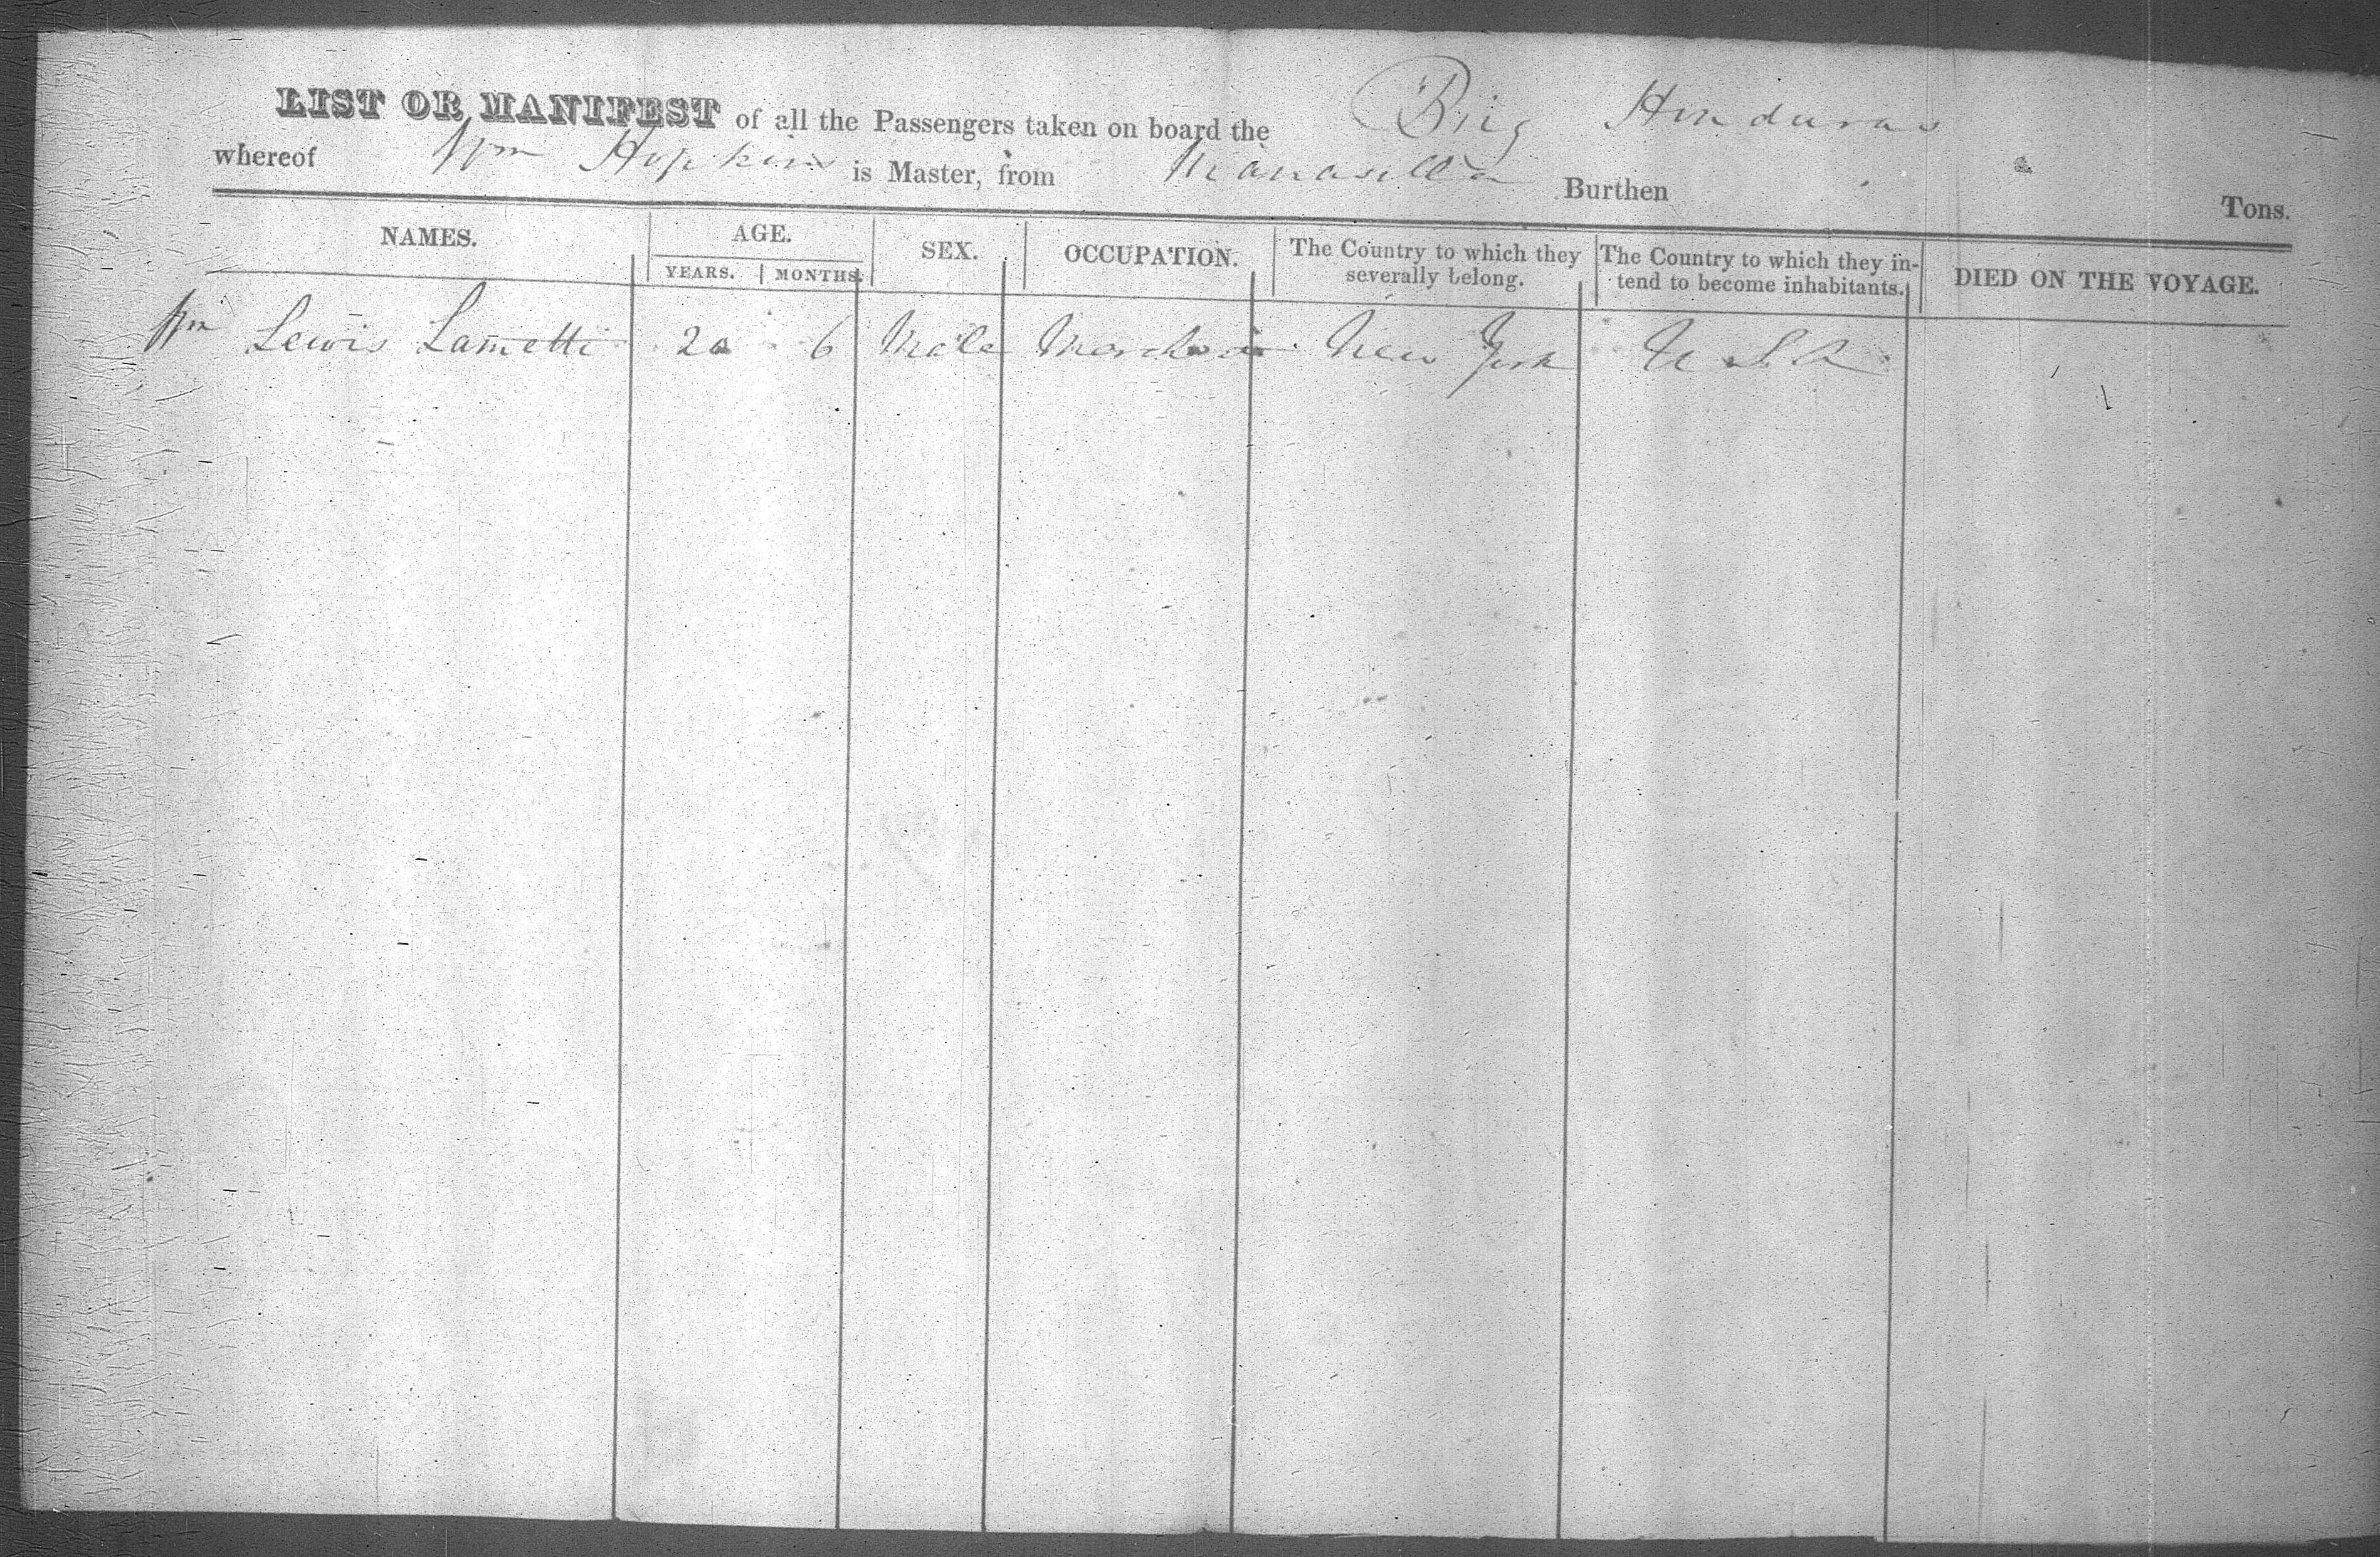 LIST OR MANIFEST of all the Passengers taken on board the Brig Honduras
whereof Wm Hopkins is Master, from Manasilla Burthen Tons.
NAMES. AGE. SEX. OCCUPATION. The Country to which they severally belong. The Country to which they intend to become inhabitants. DIED ON THE VOYAGE.
YEARS. MONTHS.
Lewis Lametti 20 6 Male New York U S A